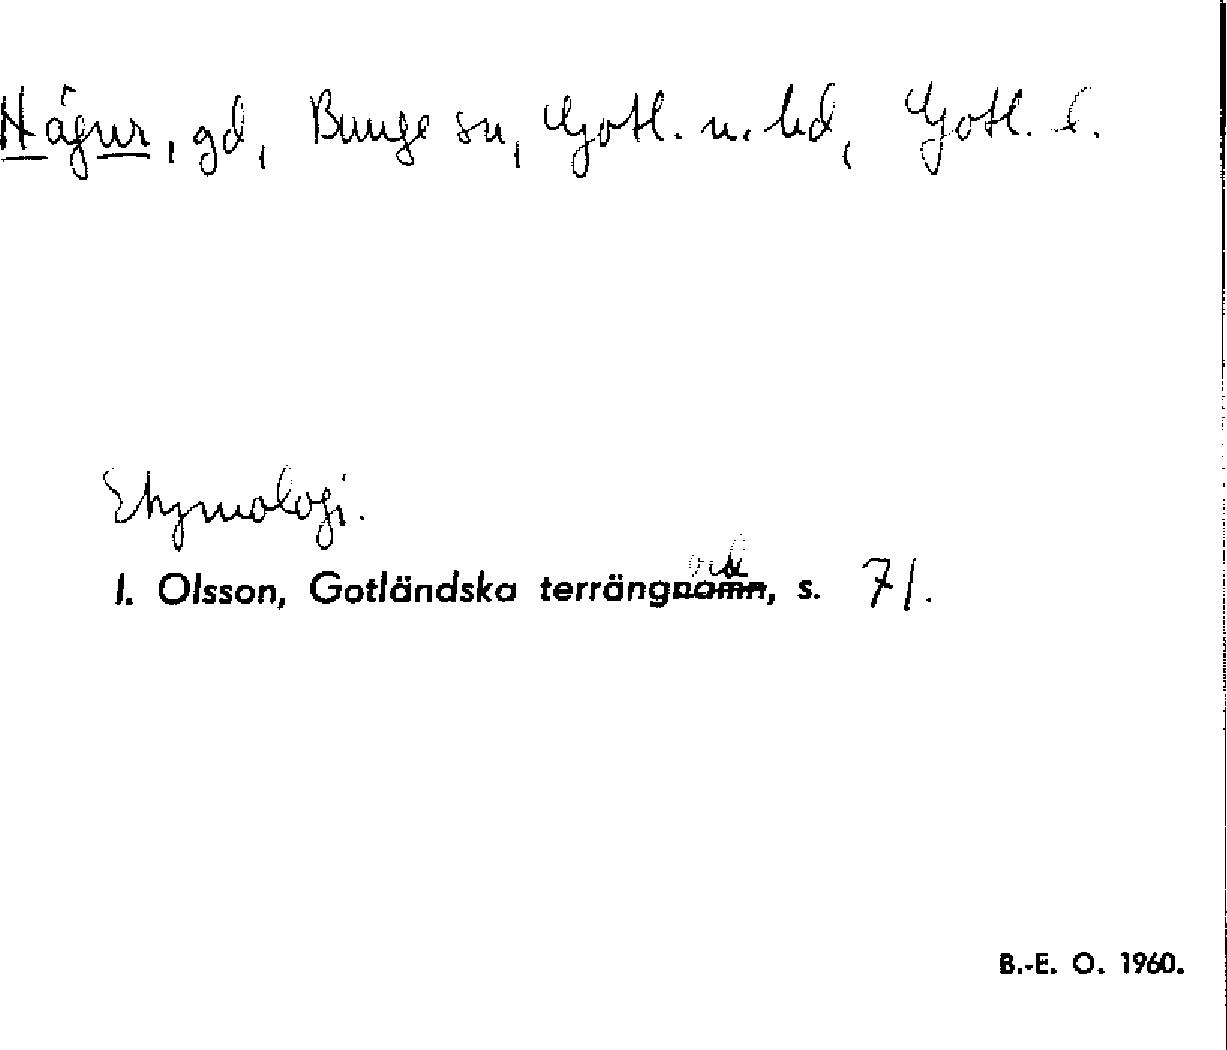 Hägur, gd, Bunge sn, Gotl. n. hd, Gotl. l.
Etymologi.
I. Olsson, Gotländska terrängnamn, s. 71.
ord
B.-E. O. 1960.